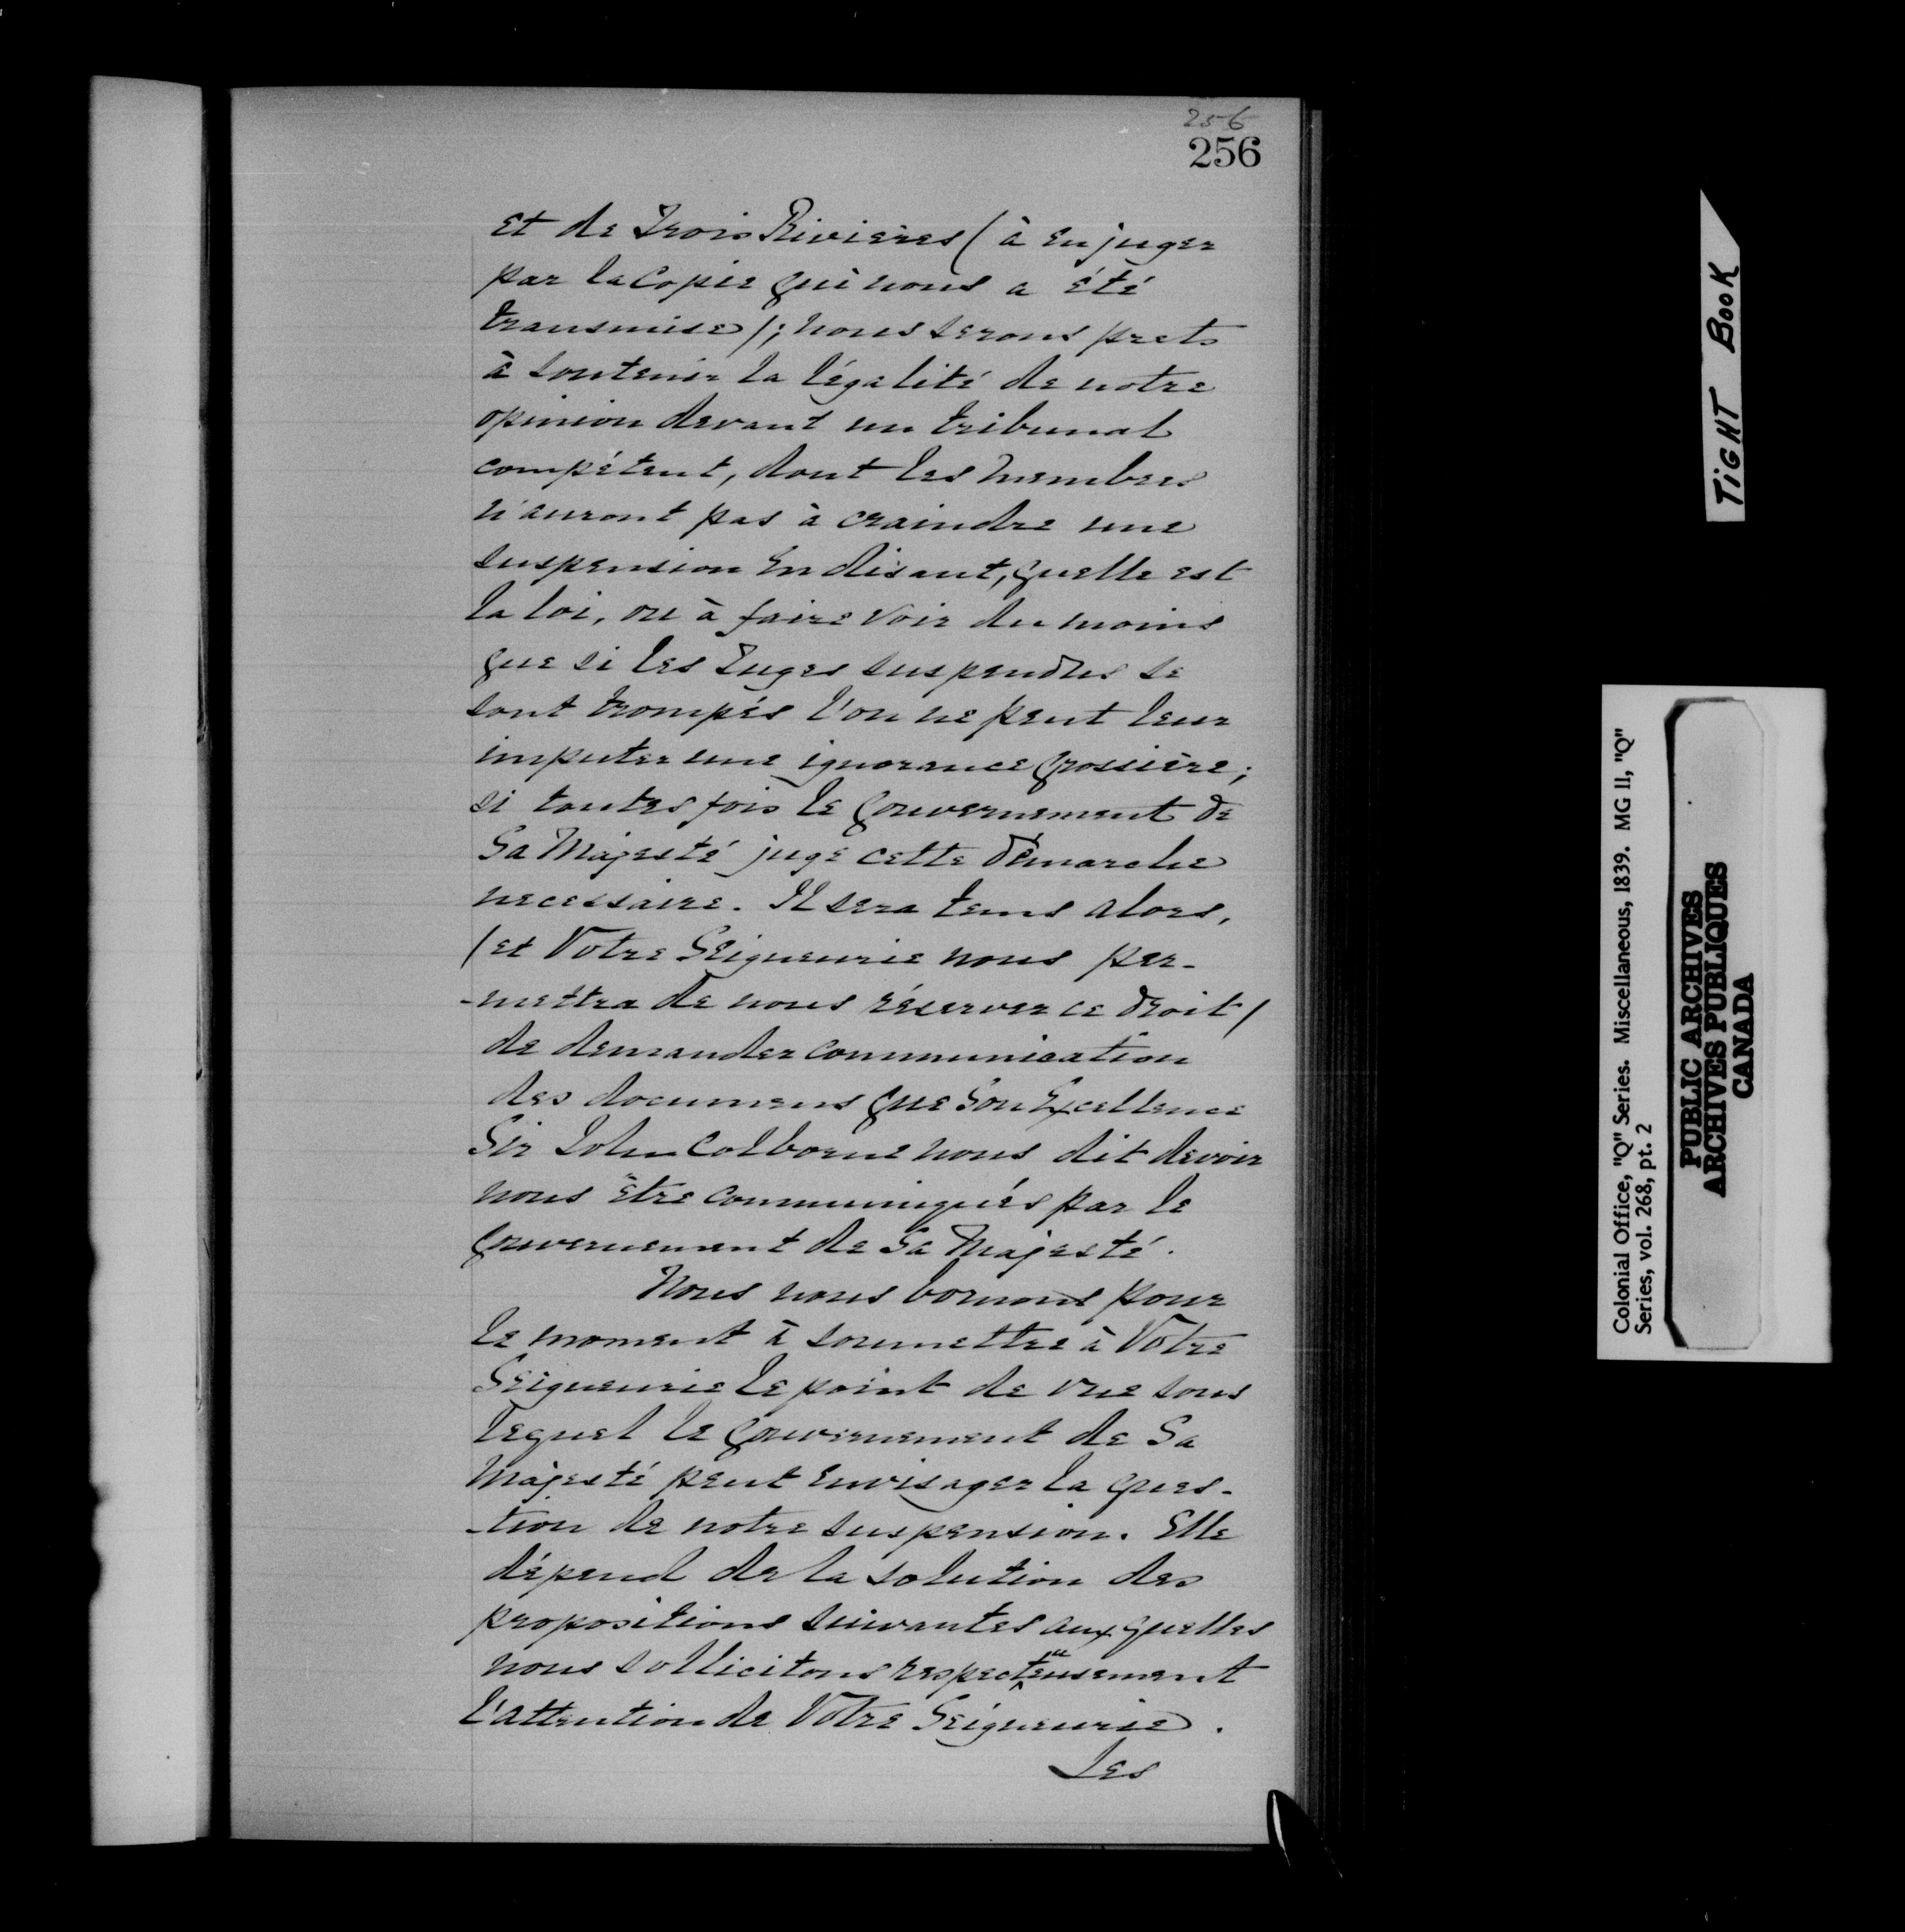 256
256
et de Trois Rivieres (à en juger
par la Copie qui nous a été
transmise); nous serons prets
à soutenir la légalité de notre
opinion devant un tribunal
compétent, dont les membres
n'auront pas à craindre une
suspension en disant, quelle est
la loi, ou à faire voir du moins
que si les Juges suspendus se
sont trompés l'on ne peut leur
imputer une ignorance grossière;
si toutes fois le gouvernement de
Sa Majesté juge cette démarche
necessaire. Il sera tems alors,
(et Votre Seigneurie nous per-
-mettra de nous réserver ce droit)
de demander communication
des documens que Son Excellence
Sir John Colborne nous dit devoir
nous être communiqués par le
gouvernement de Sa Majesté.
Nous nous bornons pour
le moment à soumettre à Votre
Seigneurie le point de vue sous
lequel le gouvernement de Sa
Majesté peut envisager la ques-
-tion de notre suspension. Elle
dépend de la solution des
propositions suivantes aux quelles
nous sollicitons respectueusement
l'attention de Votre Seigneurie.
Les
TiGHT BOOK
Colonial Office, "Q" Series. Miscellaneous, 1839. MG 11, "Q"
Series, vol. 268, pt. 2
PUBLIC ARCHIVES
ARCHIVES PUBLIQUES
CANADA